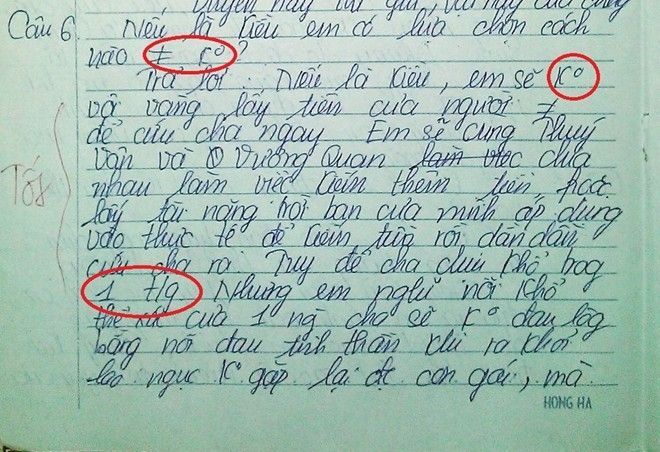 chuyện này
Câu 6. Nếu là Kiều em có lựa chọn cách
nào ≠ Ko?
Trả lời: Nếu là Kiều, em sẽ Ko
vội vàng lấy tiền của người ≠
để cứu cha ngay. Em sẽ cùng Thuý
Tốt
Vân và Vương Quan làm việc chia
nhau làm việc kiếm thêm tiền, hoặc
lấy tài năng trời ban của mình áp dụng
vào thực tế để kiếm tiền rồi dần dần
cứu cha ra. Tuy để cha chịu khổ trog
1 t/g. Nhưng em nghĩ nỗi khổ
thể xác của 1 ng cha sẽ Ko đau lòg
bằng nỗi đau tinh thần khi ra khỏi
lao ngục Ko gặp lại đc con gái, mà
HONG HA